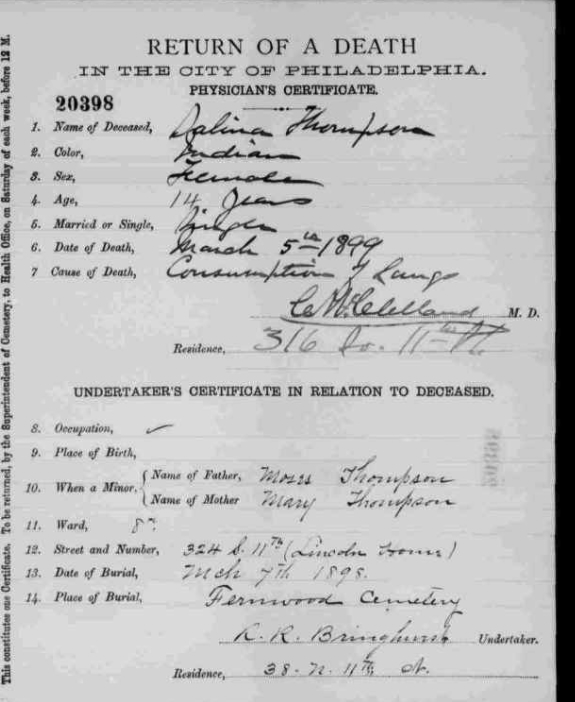 RETURN OF A DEATH
IN THE CITY OF PHILADELPHIA.
PHYSICIAN'S CERTIFICATE.
20398
1. Name of Deceased, Salina Thompson
2. Color, Indian
3. Sex, Female
4. Age, 14 Years
5. Married or Single, Single
6. Date of Death, March 5th 1899
7 Cause of Death, Consumption of Lungs
C McClelland M. D.
Residence, 316 So. 11th St
UNDERTAKER'S CERTIFICATE IN RELATION TO DECEASED.
8. Occupation,
9. Place of Birth,
10. When a Minor, { Name of Father, Moses Thompson
Name of Mother Mary Thompson
11. Ward, 8th
12. Street and Number, 324 S. 11th (Lincoln Home)
13. Date of Burial, Mch 7th 1898.
14. Place of Burial, Fernwood Cemetery
R. R. Bringhurst Undertaker.
Residence, 38. N. 11th St.
This constitutes one Certificate. To be returned, by the Superintendent of Cemetery, to Health Office, on Saturday of each week, before 12 M.